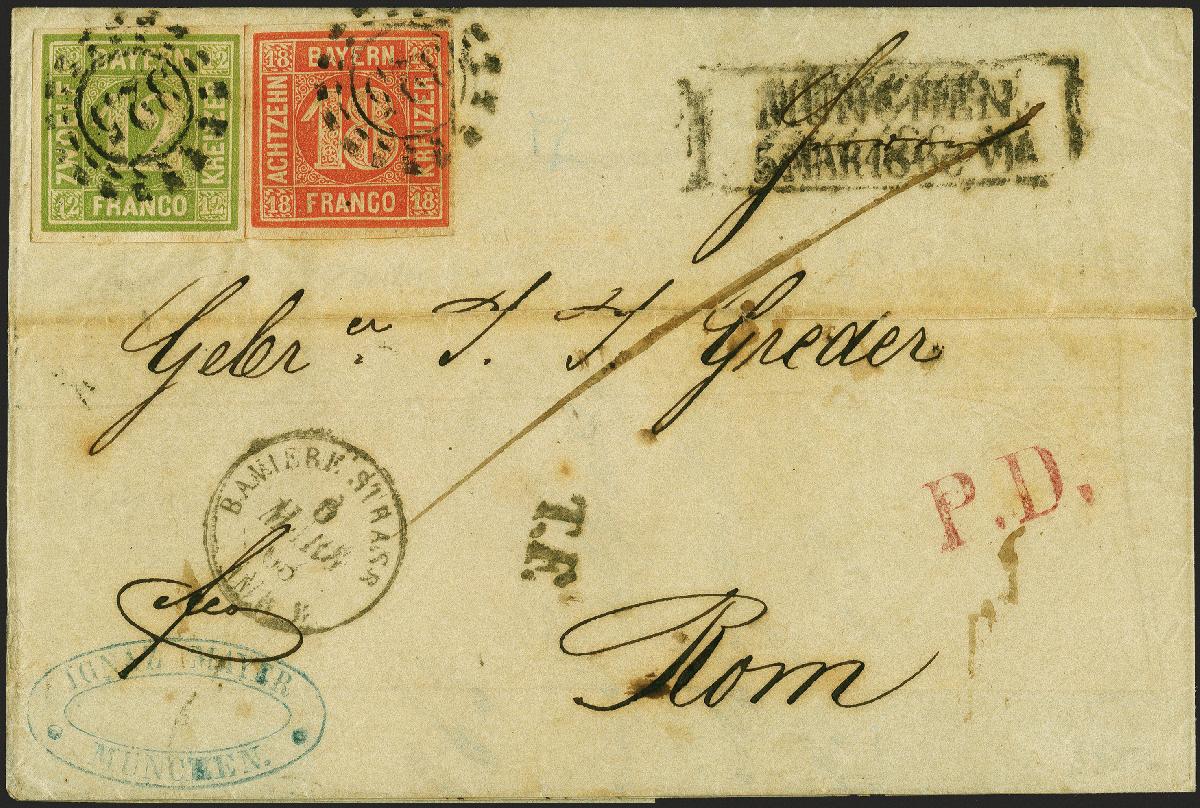 12 BAYERN 12
ZWÖLF
KREUZER
12 FRANCO 12
325
18 BAYERN 18
ACHTZEHN
18
KREUZER
18 FRANCO 18
325
MÜNCHEN
5 MAR 186
Gebr er J. J. Greder
BAVIERE STRASB
6
MARS
65
P.D.
T.F.
fco
Rom
IGNAZ MAYER
MÜNCHEN.